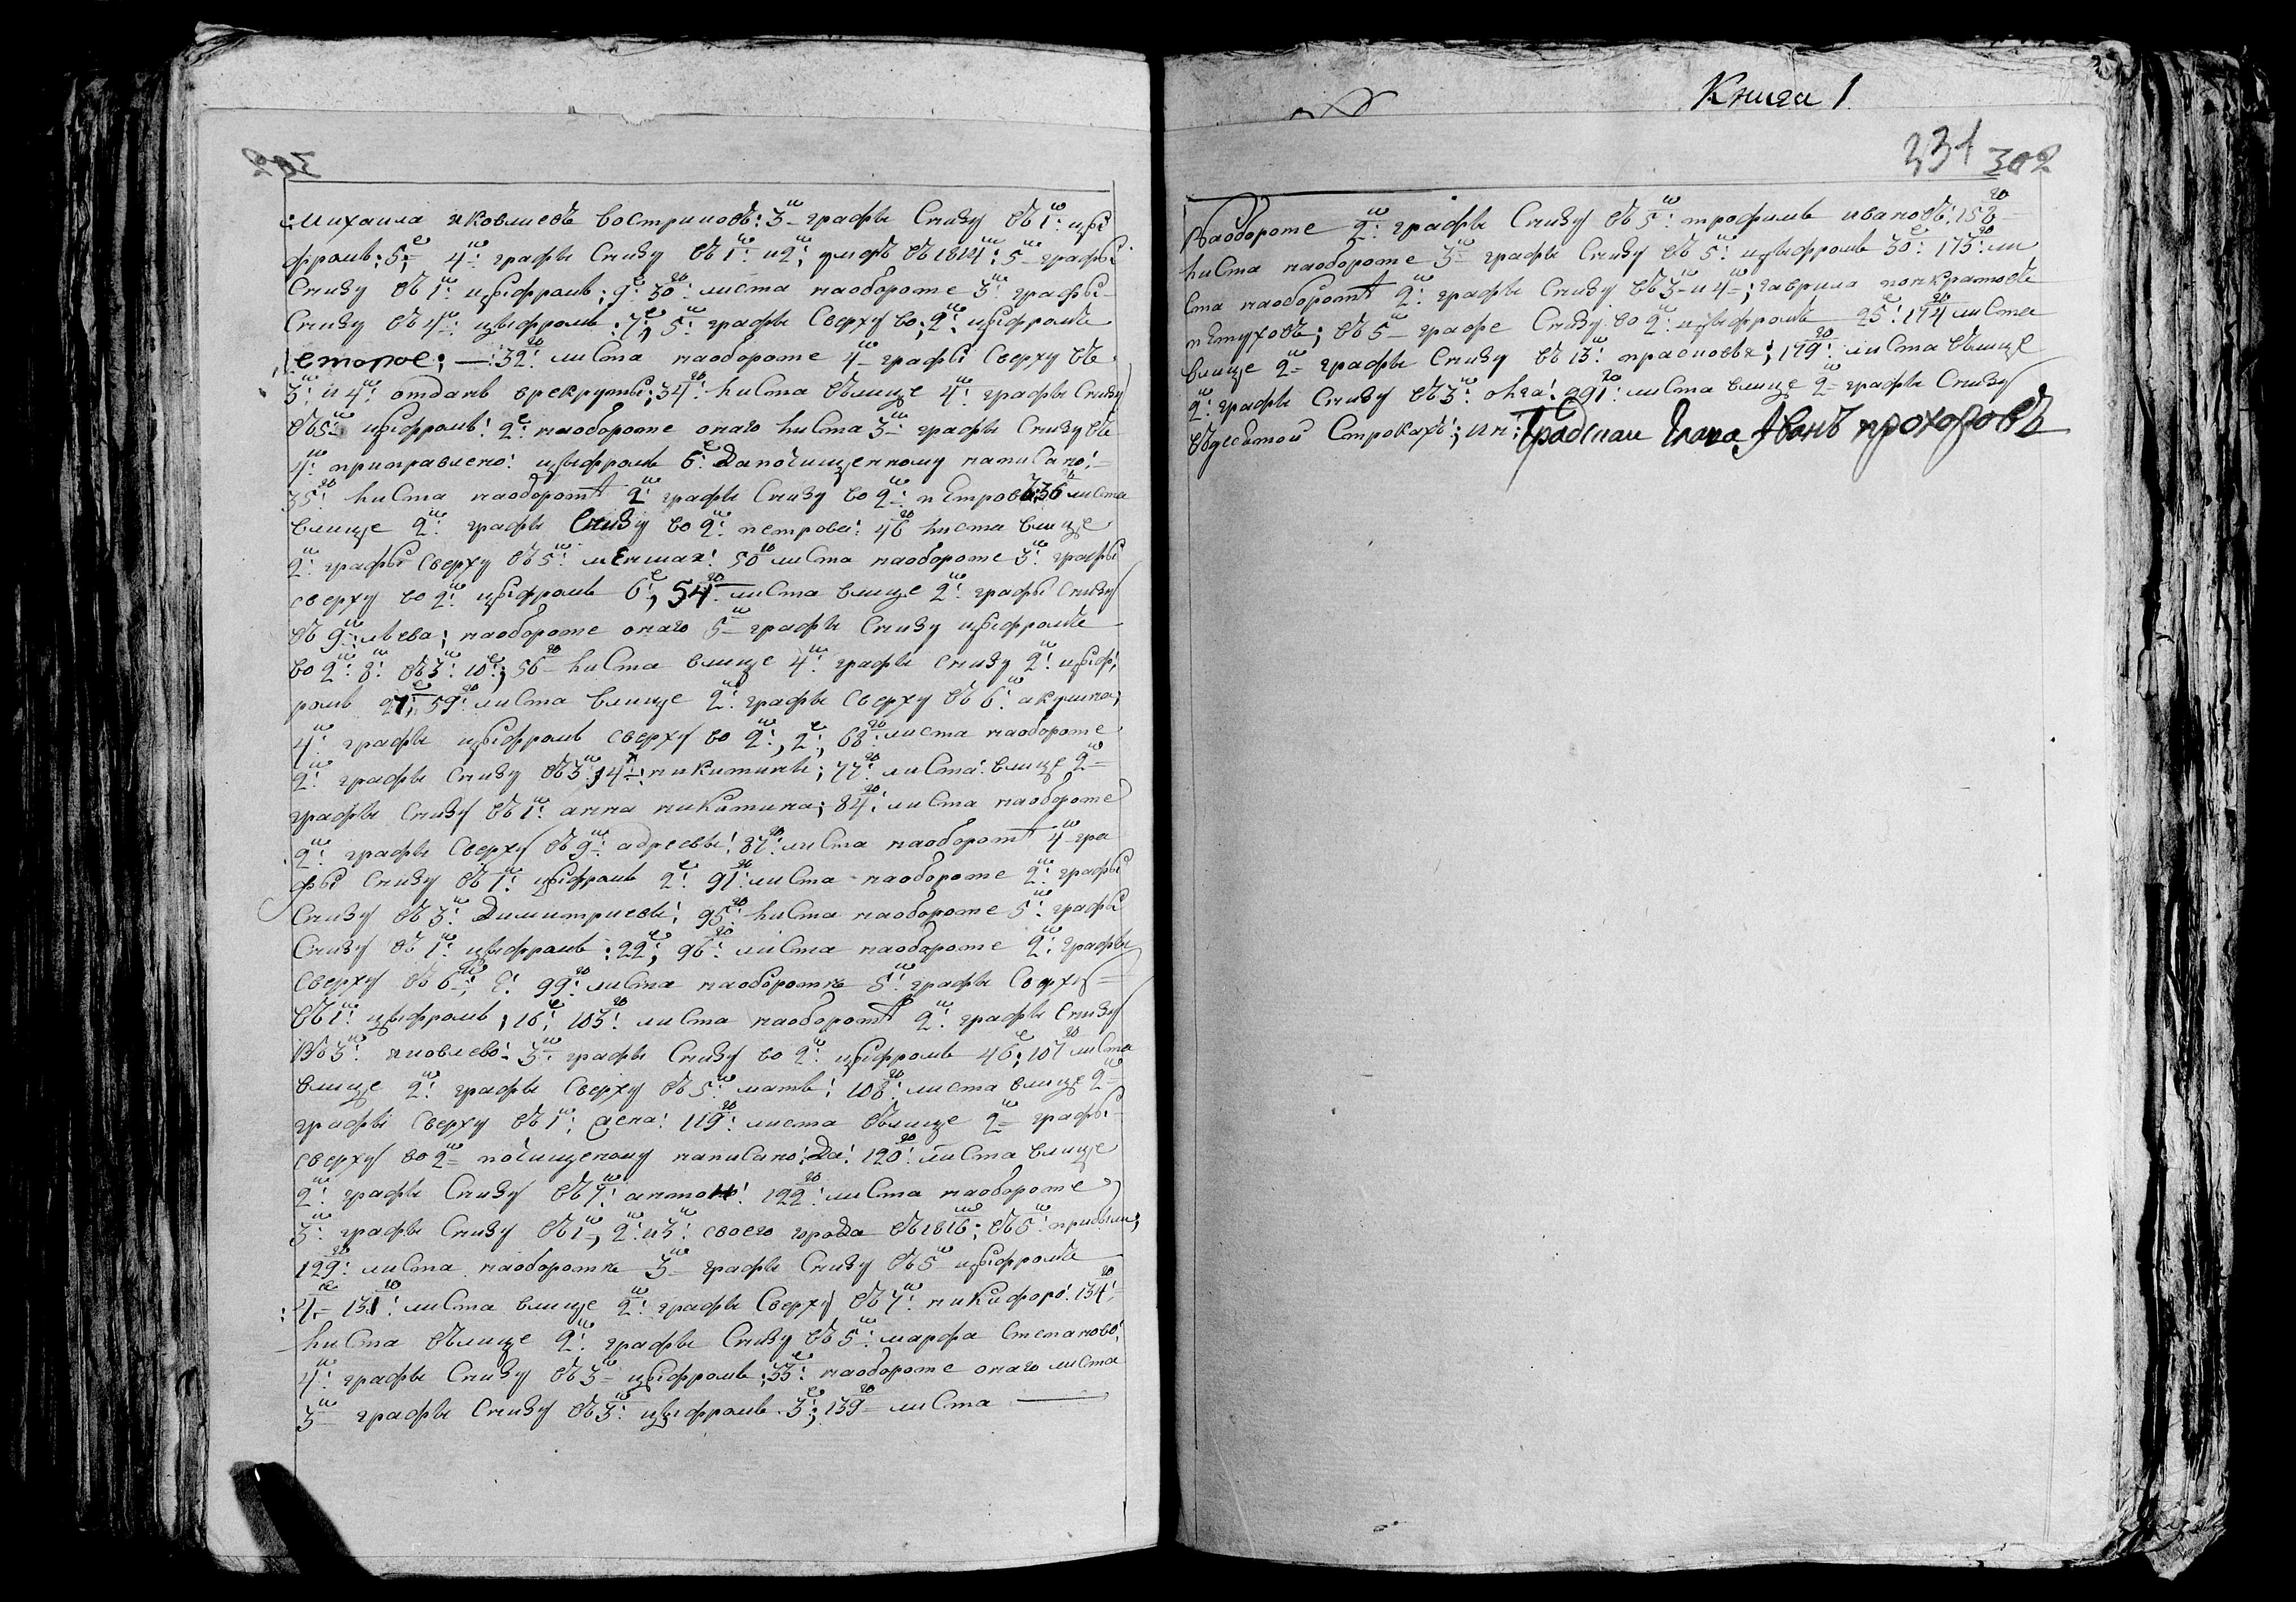 Михаила яковлевъ востриковъ: 3й графы Снизу въ 1й: цы
фрамъ: 5е, 4й графы Снизу въ 1й: и 2й; умеръ въ 1814м; 5й графы
Снизу въ 1й: цыфрамъ; 9е: 30го: листа наобороте 3й: графы
Снизу въ 4й: цыфрамъ: 7е, 5й: графы Сверху во; 2й: цыфрамъ
еторое; — 32го: листа наобороте 4й графы Сверху въ
3й: и 4й: отданъ врекруты; 34го: листа вълице 4й: графы Снизу
въ 5й: цыфрамъ: 2е: наобороте онаго листа 3й графы Снизу въ
4й: приправлено: цыфрамъ 6е: Да почищенному написано:
35го: листа наоборотѣ 2й графы Снизу во 2й: петрова: 36го листа
влице 2й: графы Снизу во 2й: петрова: 46го листа влице
2й: графы Сверху въ 5й: меншая: 50го листа наобороте 3й: графы
сверху во 2й: цыфрамъ 6е, 54го листа влице 2й: графы Снизу
въ 9й: ; наобороте онаго 5й графы Снизу цыфрамъ
во 2й: 8й: въ 3й: 10е; 56го листа влице 4й: графы снизу 2й: цыф
рамъ 21е, 59го: листа влице 2й: графы Сверху въ 6й: акулина;
4й: графы цыфрамъ сверху во 2й:, 2е:, 68го: листа наобороте
2й: графы снизу въ 3й: никитинъ; 77го: листа: влице 2й
графы Снизу въ 1й: анна никитина; 84го: листа наобороте
2й: графы Сверху въ 9й: адреевы: 87го: листа наоборотѣ 4й гра
фы Снизу въ 1й: цыфрамъ 2е: 91го: листа наобороте 2й: графы
Снизу въ 3й: Димитриевы: 95го: листа наобороте 5й: графы
Снизу въ 1й: цыфрамъ: 22е; 96го: листа наобороте 2й: графы
Сверху въ 6й: 99го: листа наоборотѣ 5й: графы Сверху
въ 1й: цыфрамъ; 16е; 103го: листа наоборотѣ 2й: графы Снизу
Въ 3й: яковлево: 3й: графы Снизу во 2й: цыфрамъ 46е; 107го листа
влице 2й: графы Сверху въ 5й: матвѣ: 108го: листа влице 2й
графы Сверху въ 1й; 119го: листа влице 2й графы
сверху во 2й почищеному написано: Да: 120го: листа влице
2й: графы Снизу въ 7й: антонъ: 122го: листа наобороте
3й: графы Снизу въ 1й, 2й: и 3й: своего города въ 1816м; въ 5й: прибыли;
129го: листа наоборотѣ 3й графы Снизу въ 5й цыфрамъ
4е 131го: листа влице 2й: графы Сверху въ 7й: никифоро: 134го:
листа влице 2й: графы Снизу въ 5й: марфа Степаново:
4й: графы Снизу въ 3й цыфрамъ: 33е: наобороте онаго листа
3й графы Снизу въ 3й: цыфрамъ 3е; 139го листа
302
Книга 1
331 302
Наобороте 2й: графы Снизу въ 5й: трофимъ ивановъ: 158го
листа наобороте 3й графы Снизу въ 5й: цыфрамъ 30е: 173го: ли
ста наоборотѣ 2й: графы Снизу въ 3й и 4й; гаврила понкратовъ
петуховъ; въ 5й графе Снизу во 2й: цыфрамъ 25е: 174го листа
влице 2й графы Снизу въ 13й: прасковья; 179го: листа влице
2й: графы Снизу въ 3й: олга: 291го: листа влице 2й графы Снизу
въдесятой Строкахъ; Градскаи Глава Иванъ прохоровъ